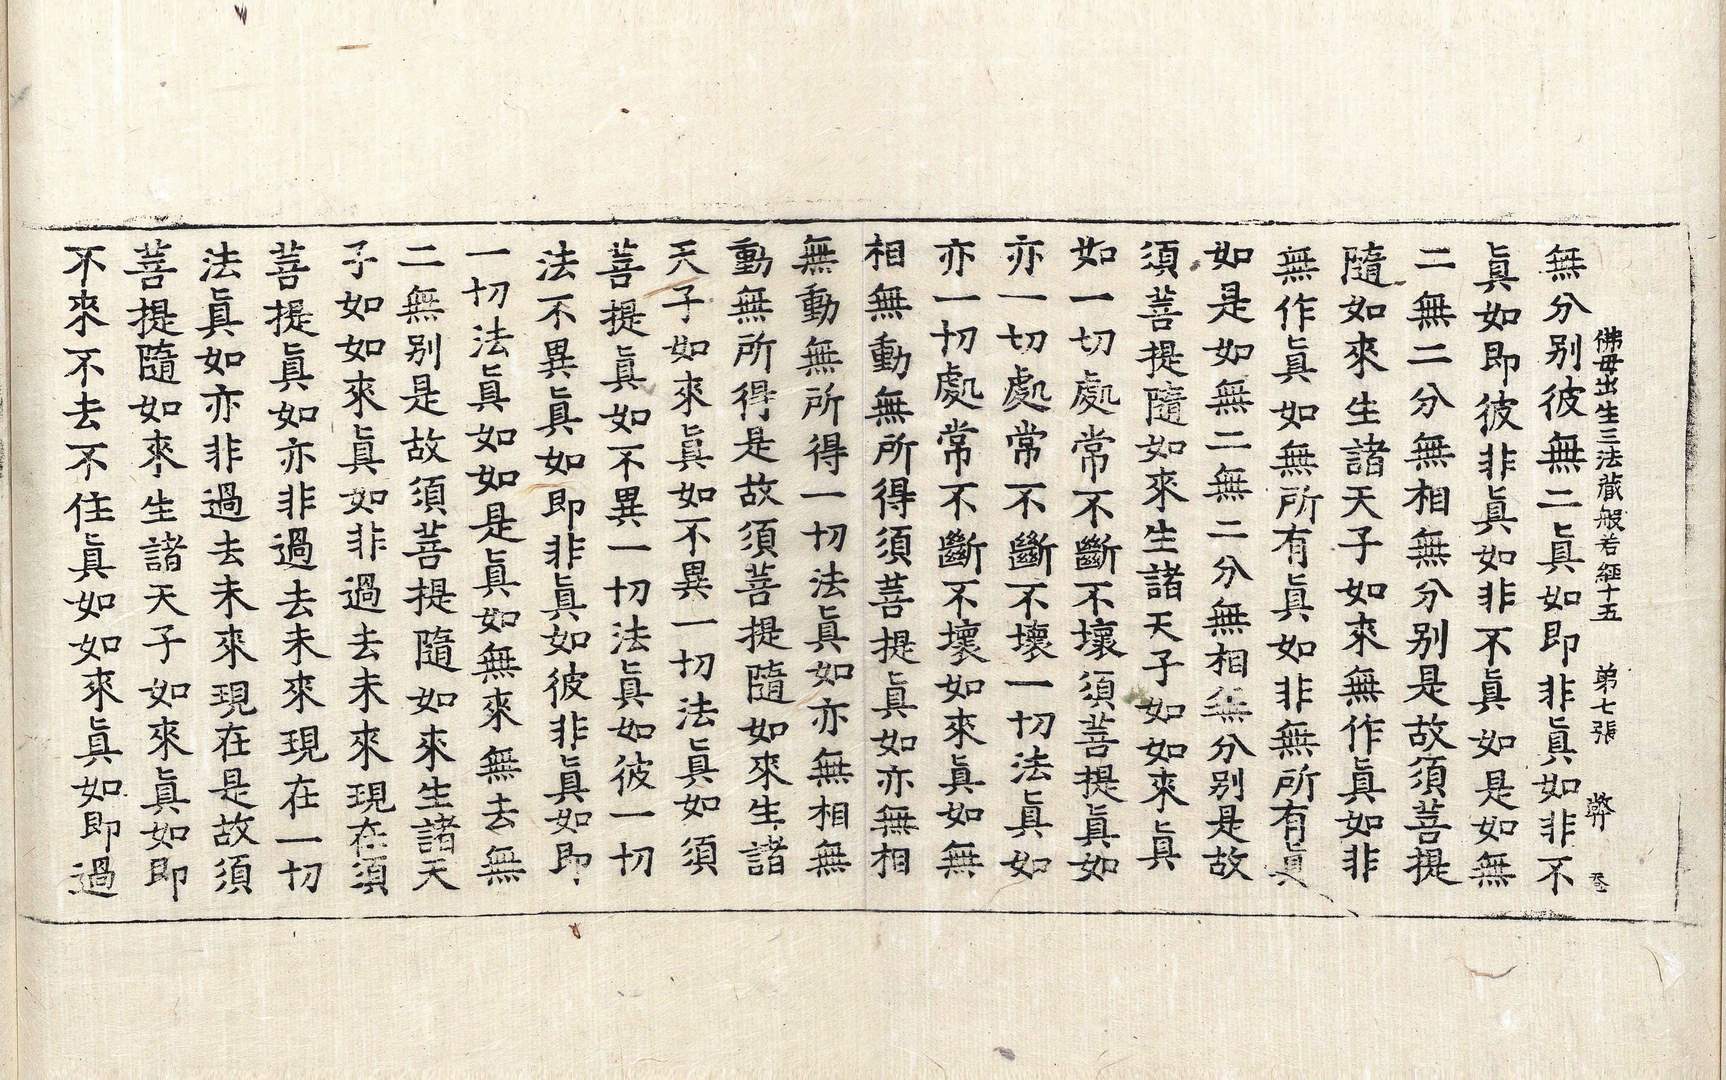 佛母出生三法藏般若經十五 第七張 弊
無分别彼無二眞如即非眞如非不
眞如即彼非眞如非不眞如是如無
二無二分無相無分别是故須菩提
隨如來生諸天子如來無作眞如非
無作眞如無所有眞如非無所有眞
如是如無二無二分無相無分别是故
須菩提隨如來生諸天子如如來眞
如一切處常不斷不壞須菩提眞如
亦一切處常不斷不壞一切法眞如
亦一切處常不斷不壞如來眞如無
相無動無所得須菩提眞如亦無相
無動無所得一切法眞如亦無相無
動無所得是故須菩提隨如來生諸
天子如來眞如不異一切法眞如須
菩提眞如不異一切法眞如彼一切
法不異眞如即非眞如彼非眞如即
一切法眞如如是眞如無來無去無
二無别是故須菩提隨如來生諸天
子如如來眞如非過去未來現在須
菩提眞如亦非過去未來現在一切
法眞如亦非過去未來現在是故須
菩提隨如來生諸天子如來眞如即
不來不去不住眞如如來眞如即過